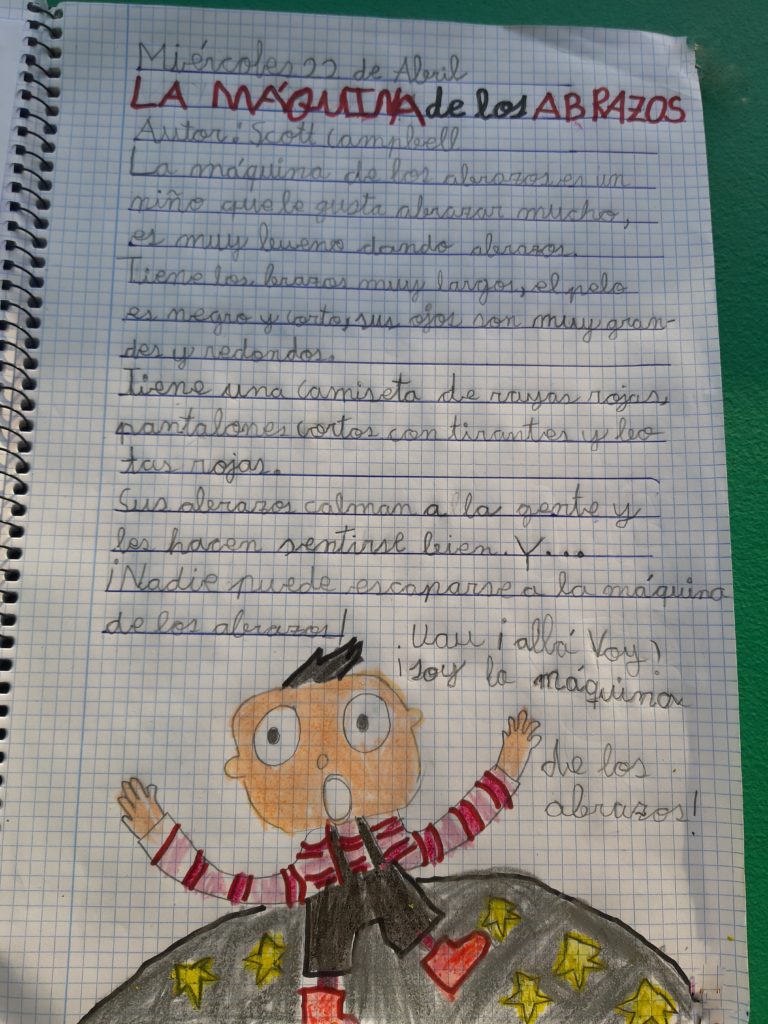 Miércoles 22 de Abril
LA MÁQUINA de los ABRAZOS
Autor: Scott Campbell
La máquina de los abrazos es un
niño que le gusta abrazar mucho,
es muy bueno dando abrazos.
Tiene los brazos muy largos, el pelo
es negro y corto, sus ojos son muy gran-
des y redondos.
Tiene una camiseta de rayas rojas,
pantalones cortos con tirantes y bo
tas rojas.
Sus abrazos calman a la gente y
les hacen sentirse bien. Y...
¡Nadie puede escaparse a la máquina
de los abrazos!
. Uau ¡allá Voy!
¡soy la máquina
de los
abrazos!